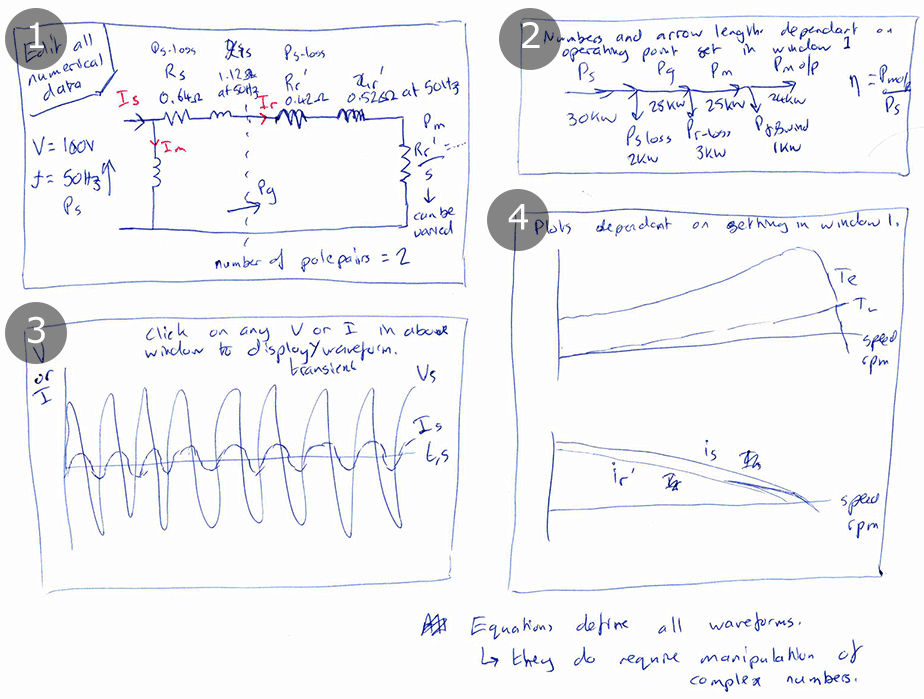 1
Edit all
numerical
data
Ps-loss
Rs
0.64Ω
1.12Ω
at 50Hz
Ps-loss
Rr'
0.42Ω
xr'
0.526Ω at 50Hz
Is
Ir
Im
V = 100V
f = 50Hz
Ps
Pg
Pm
Rr' = ...
s
can be
varied
number of pole pairs = 2
2
Numbers and arrow lengths dependant on
operating point set in window 1
Ps
Pg
Pm
Pm o/p
30KW
28KW
25KW
24KW
Ps loss
2KW
Pr-loss
3KW
1KW
η = Pm o/p
Ps
3
click on any V or I in above
window to display waveform.
transient
V
or
I
Vs
Is
t,s
4
Plots dependant on setting in window 1.
Te
TL
speed
rpm
is
ir'
speed
rpm
Equations define all waveforms.
↳ they do require manipulation of
complex numbers.